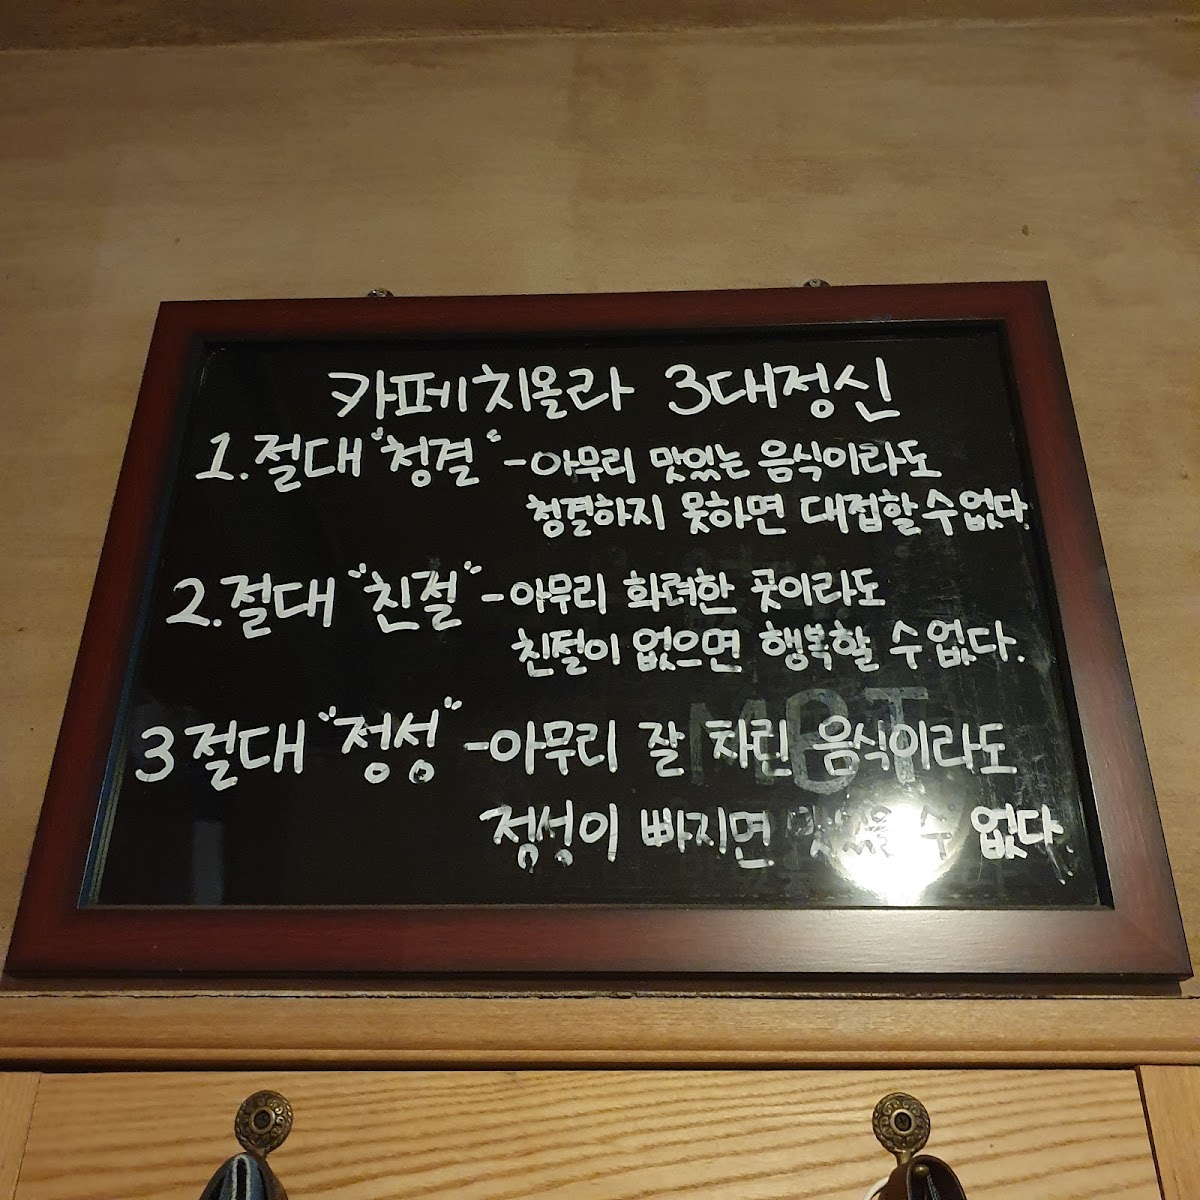 카페치올라 3대정신
1. 절대 "청결" - 아무리 맛있는 음식이라도
청결하지 못하면 대접할 수 없다.
2. 절대 "친절" - 아무리 화려한 곳이라도
친절이 없으면 행복할 수 없다.
3 절대 "정성" - 아무리 잘 차린 음식이라도
정성이 빠지면 맛있을 수 없다.